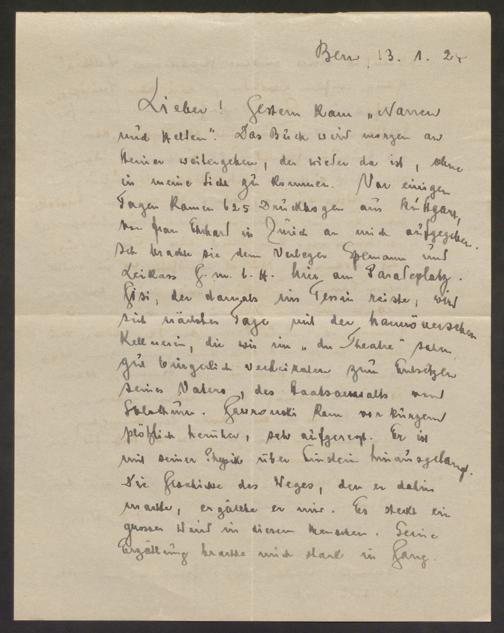 Bern, 13. 1. 2
Lieber! Gestern kam „Narren
und Helden“. Das Buch wird morgen an
weitergehen, der wieder da ist, ohne
in meine zu kommen. Vor einigen
Tagen kamen 625 Druckbogen aus Stuttgart,
von Frau in Zürich an mich aufgegeben.
Ich brachte sie dem Verleger und
G. m. b. H. hier am Paradeplatz.
Gisi, der damals ins Tessin reiste, wird
sich nächster Tage mit der hannöverschen
Kellnerin, die wir im „du Théatre“ sahen,
gut bürgerlich verheiraten zum Entsetzen
seines Vaters, des Staatsanwalts von
Solothurn. kam vor kurzem
plötzlich herüber, sehr aufgeregt. Er ist
mit seiner Physik über Einstein hinausgelangt.
Die Geschichte des Weges, den er dahin
machte, erzählte er mir. Es steckt ein
grosser Wind in diesem Menschen. Seine
Erzählung brachte mich stark in Gang.